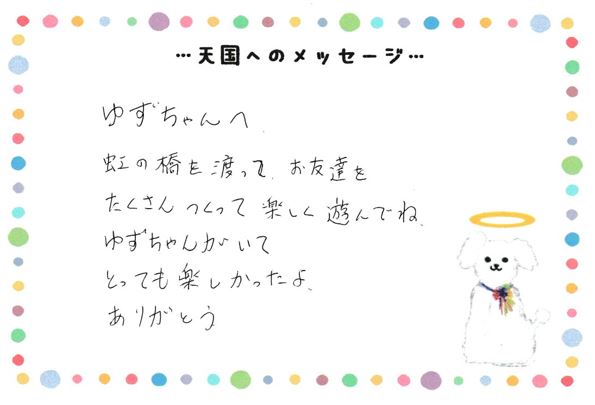 …天国へのメッセージ…
ゆずちゃんへ
虹の橋を渡って、お友達を
たくさんつくって楽しく遊んでね、
ゆずちゃんがいて
とっても楽しかったよ、
ありがとう